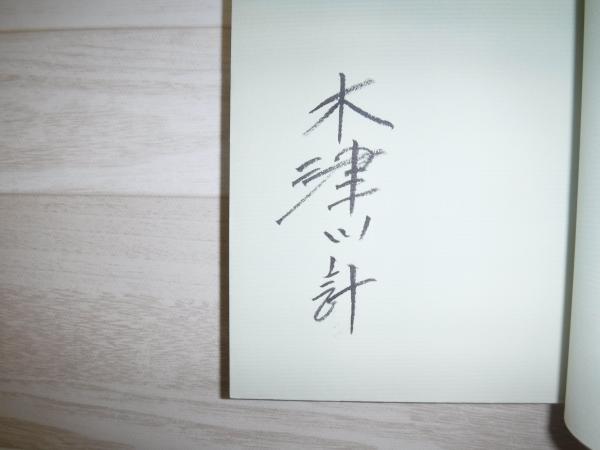 木津川計